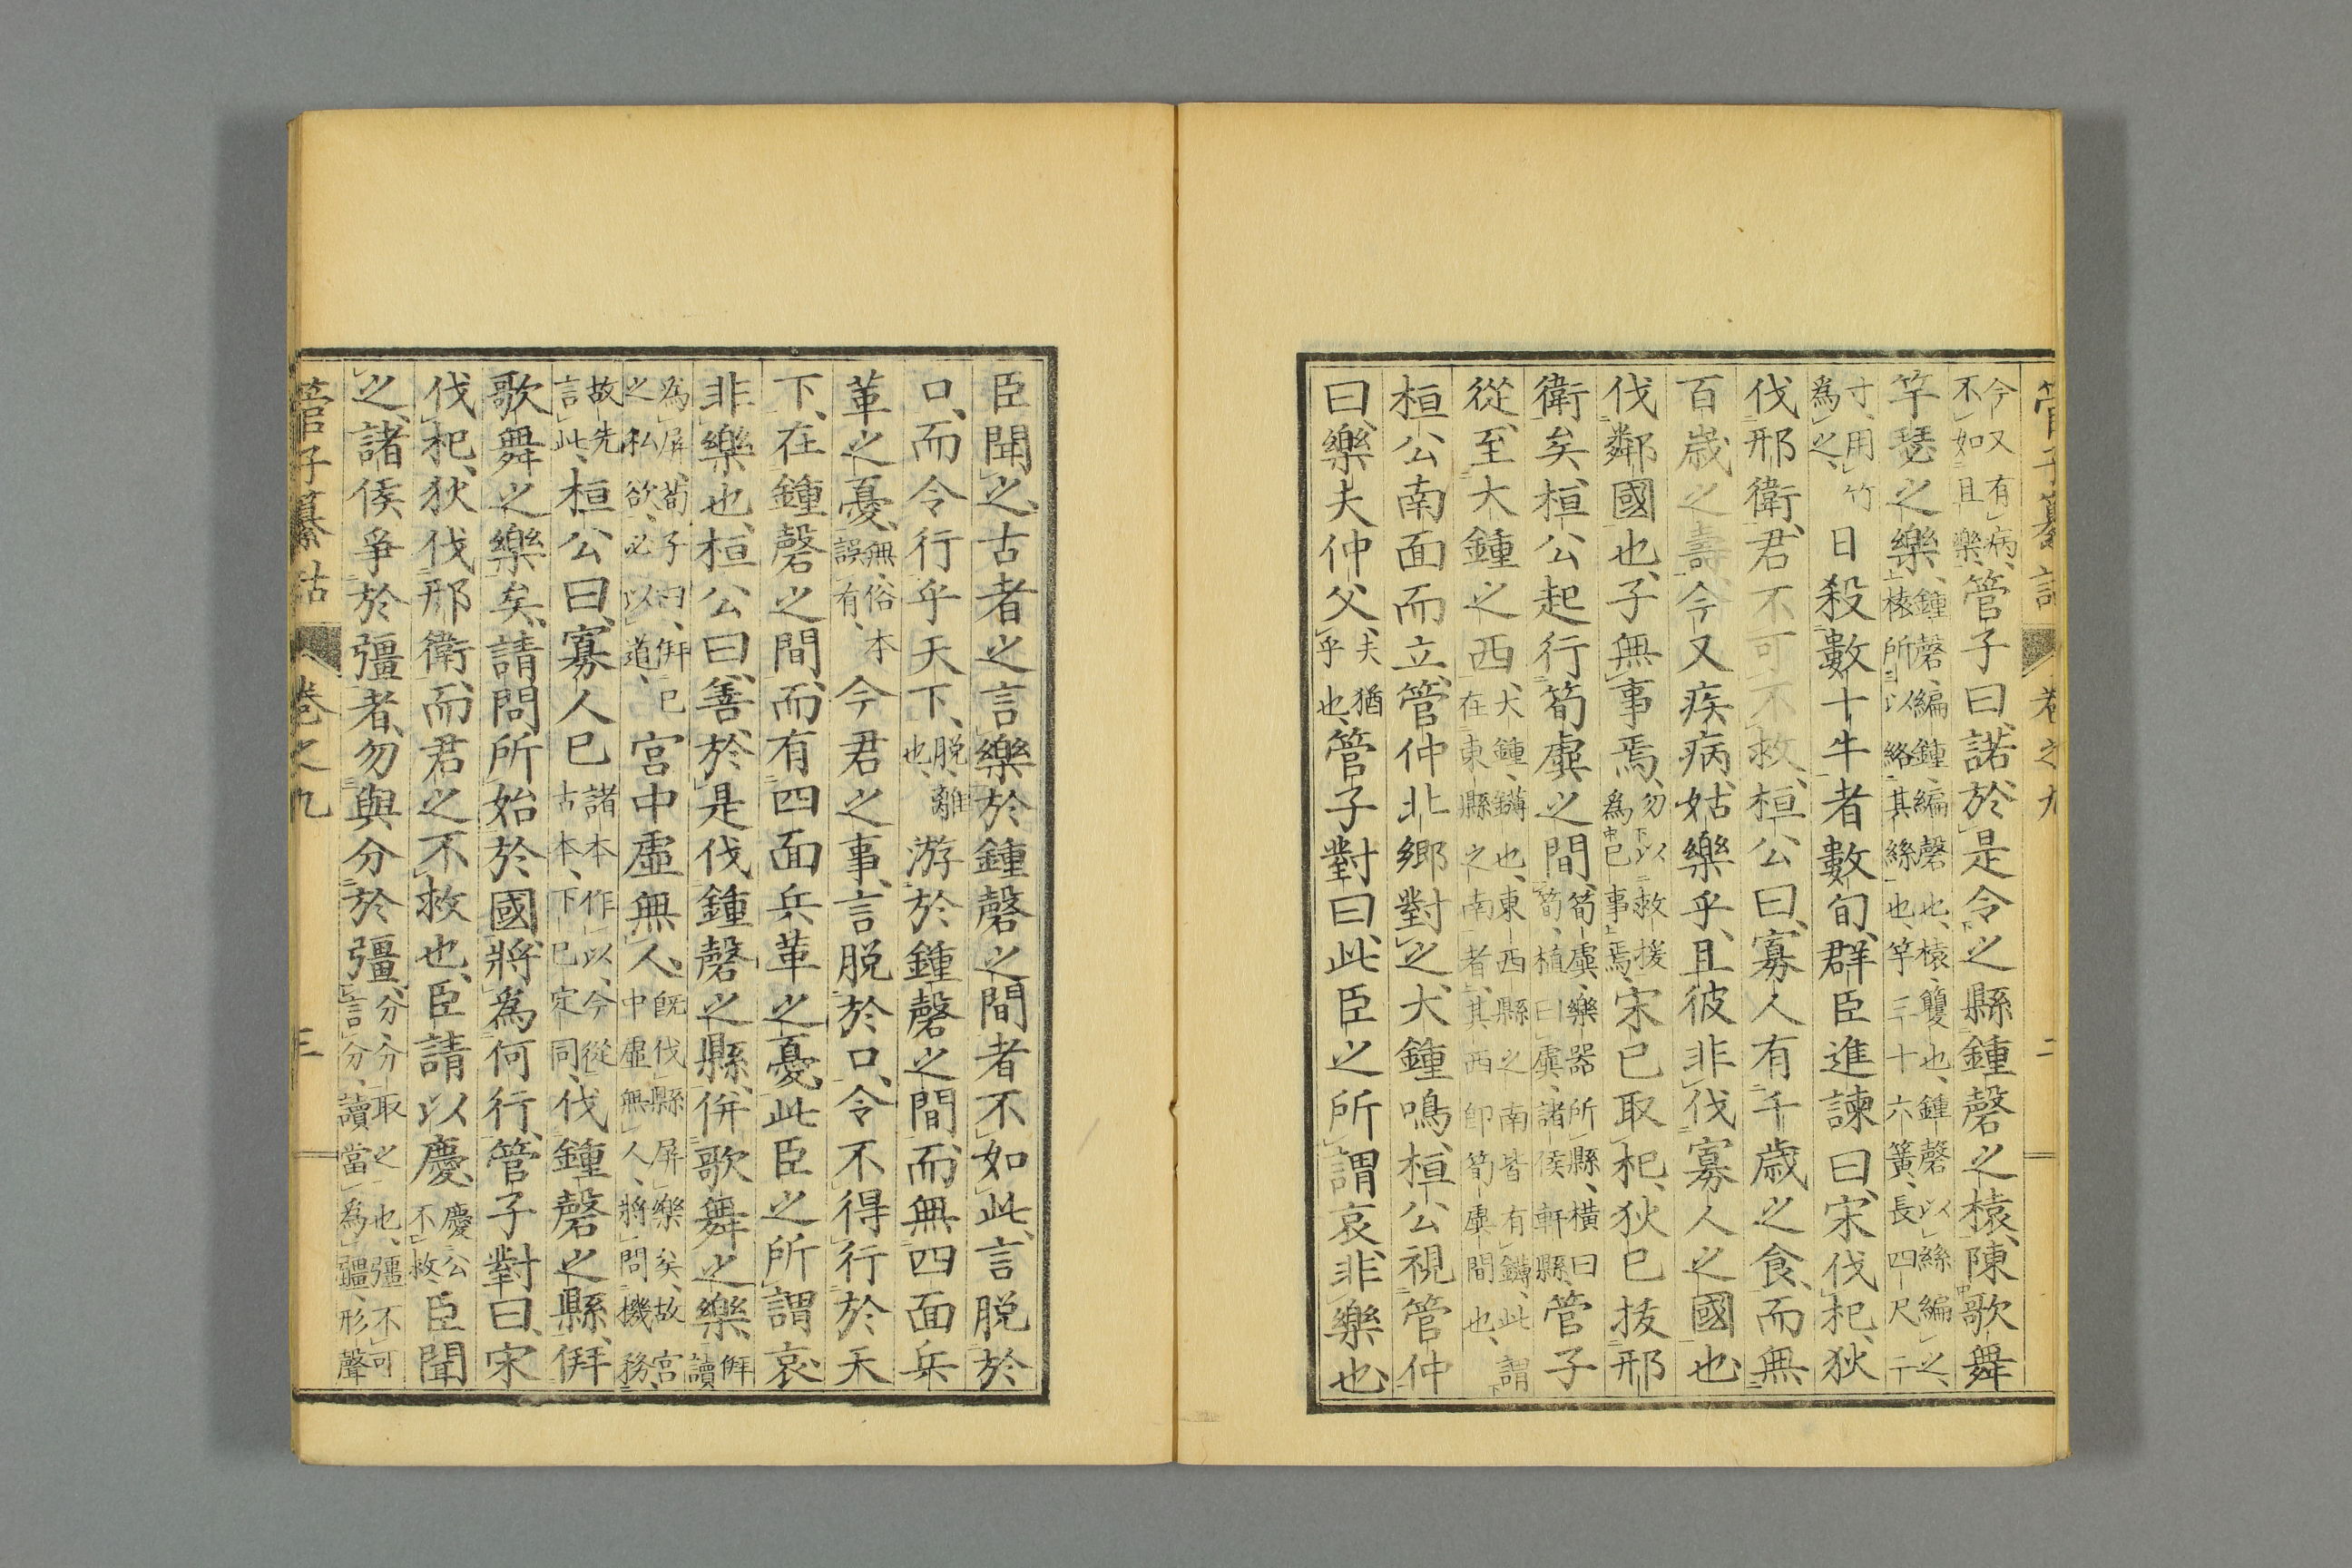 管子纂詁 卷之九 二
今又有病、不如且樂、管子曰、諾、於是令之縣鍾磬之榬、陳歌舞
竽瑟之樂、鍾磬、編鍾、編磬也、榬、籰也、鍾磬以絲編之、榬所以絡其絲也、竽三十六簧、長四尺二
寸、用竹為之、日殺數十牛者數旬、群臣進諫曰、宋伐杞、狄
伐邢衛、君不可不救、桓公曰、寡人有千歲之食、而無
百歲之壽、今又疾病、姑樂乎、且彼非伐寡人之國也、
伐鄰國也、子無事焉、勿以救援為已事焉、宋已取杞、狄已拔邢
衛矣、桓公起行筍虡之間、筍虡、樂器所縣、橫曰筍、植曰虡、諸侯軒縣、管子
從、至大鍾之西、大鍾、鏄也、東西縣之南皆有鏄、此謂在東縣之南者、其西卽筍虡間也、
桓公南面而立、管仲北鄉對之、大鍾鳴、桓公視管仲
曰、樂夫仲父、夫猶乎也、管子對曰、此臣之所謂哀、非樂也、
臣聞之、古者之言樂於鍾磬之間者不如此、言脫於
口、而令行乎天下、脫、離也、游於鍾磬之間、而無四面兵
革之憂、無、俗本誤有、今君之事、言脫於口、令不得行於天
下、在鍾磬之間、而有四面兵革之憂、此臣之所謂哀、
非樂也、桓公曰、善、於是伐鍾磬之縣、併歌舞之樂、併讀
為屏、荀子曰、併已之私欲、必以道、宮中虛無人、旣伐縣屏樂矣、故宮中虛無人、將問機務、
故先言此、桓公曰、寡人已諸本作以、今從古本、下已定同、伐鍾磬之縣、併
歌舞之樂矣、請問所始於國、將為何行、管子對曰、宋
伐杞、狄伐邢衛、而君之不救也、臣請以慶、慶公不救、臣聞
之、諸侯爭於彊者、勿與分於彊、分、分取之也、彊不可言分、讀當為疆、形聲
管子纂詁 卷之九 三